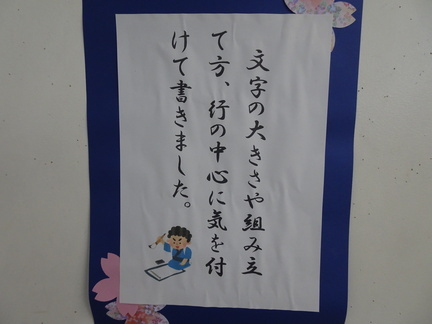 文字の大きさや組み立
て方、行の中心に気を付
けて書きました。